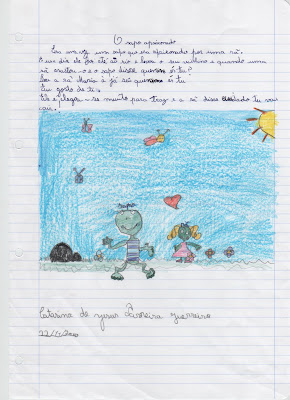 O sapo apaixonado
Era uma vez um sapo que era apaixonado por uma rã.
um dia ele foi até ao rio e levou o seu violino e quando uma
rã e o sapo disse quem és tu?
sou a rã Maria e já sei quem és tu
Eu gosto de ti.
Ele e chegou-se muito para traz e a rã disse cuidado tu vais
cair.
Catarina de Guerreiro